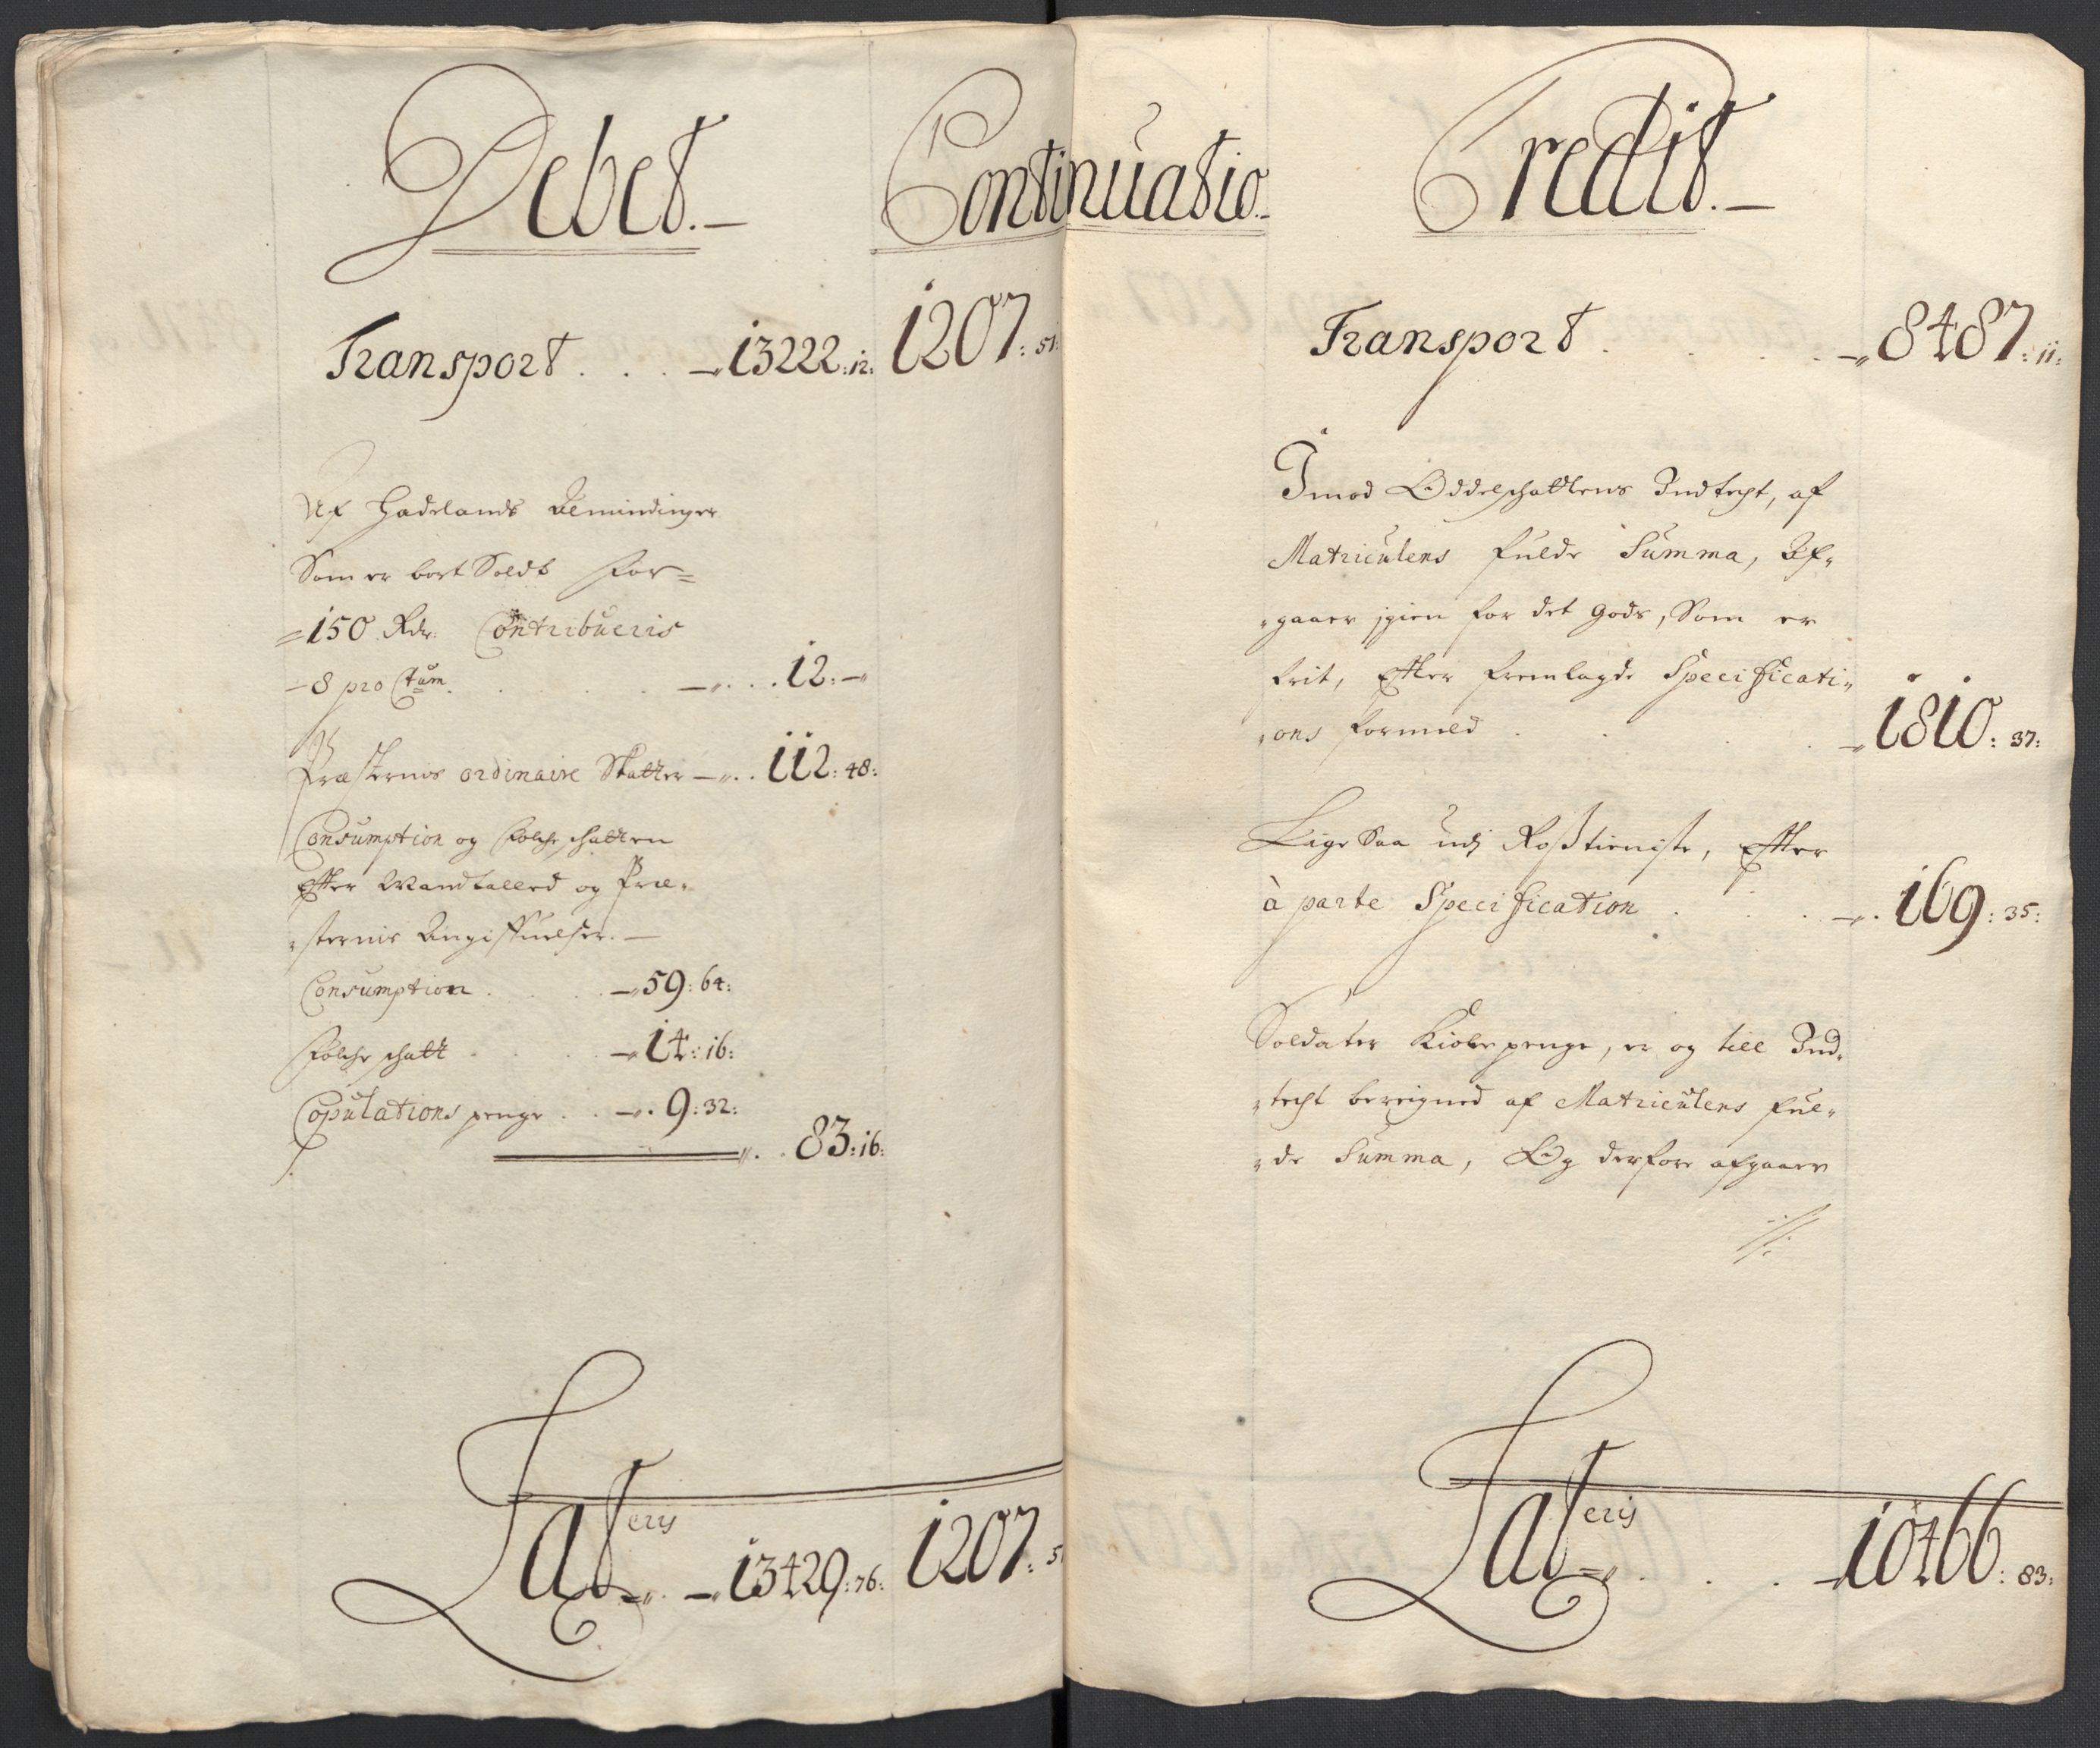 Debet.
Continuatio.
Transport . . . 13222:12: 1207:51:
Af Hadelands Almindinger
Som er bort Soldt for=
=150 Rdr. Contribueris
8 pro Ctum . . . 12:
Præsternis ordinaire Skatter . . 112:48:
Consumption og Folche schatten
Efter Mandtalled og Præ-
sternis Angiffuelser.
Consumption . . . 59:64:
Folche schatt . . . 14:16:
Copulations penge . . 9:32:
83:16:
Lateris . . 13429:76: 1207:51
Credit.
Transport . . . . 8487:11:
Imod Oddelschattens Indtecht, af
Matriculens fulde Summa, Af-
gaaer igien for det gods, Som er
frit, Efter fremlagde Specificati-
ons formeld . . . . 1810:37:
Lige saa udj Rosstieniste, Efter
à parte Specification . . . 169:35:
Soldater Kiole penge, er og till Ind-
techt bereigned af Matriculens ful-
de Summa, Og derfore afgaaer
Lateris . . . . 10466:83: